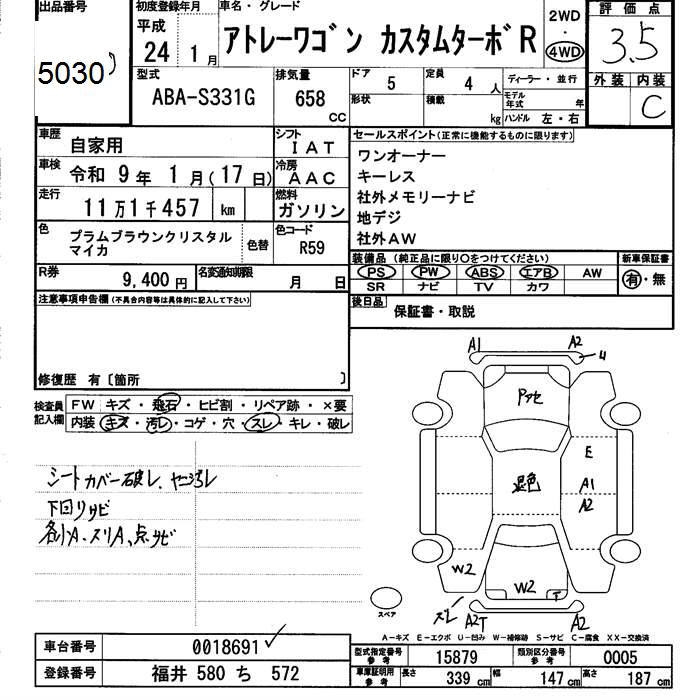 出品番号
5030
初度登録年月
平成 24 1月
車名・グレード
アトレーワゴン カスタムターボR
2WD・4WD
評価点
3.5
外装 内装
C
型式
ABA-S331G
排気量
658 CC
ドア 5
形状
定員 4人
積載 kg
ディーラー・並行
モデル年式 年
ハンドル 左・右
車歴 自家用
シフト IAT
車検 令和 9年 1月(17日)
冷房 AAC
走行 11万1千457 km
燃料 ガソリン
色 プラムブラウンクリスタルマイカ
色替
色コード R59
R券 9,400円
名変通知期限 月 日
セールスポイント(正常に機能するものに限ります)
ワンオーナー
キーレス
社外メモリーナビ
地デジ
社外AW
装備品 (純正品に限り○をつけてください)
新車保証書
PS PW ABS エアB AW
有・無
SR ナビ TV カワ
後日品 保証書・取説
注意事項申告欄(不具合内容等は具体的に記入して下さい)
修復歴 有〔箇所 〕
検査員記入欄
FW キズ・飛石・ヒビ割・リペア跡・×要
内装 キズ・汚レ・コゲ・穴・スレ・キレ・破レ
シートカバー破レ、ヤニ汚レ
下回りサビ
各小A、スリA、点サビ
A1
A2
U
Pアセ
E
退色
A1
A2
W2
W2
T
スレ
A2T
A2
スペア
A-キズ E-エクボ U-凹み W-補修跡 S-サビ C-腐食 XX-交換済
車台番号 0018691
登録番号 福井 580 ち 572
型式指定番号 参考 15879
類別区分番号 参考 0005
車庫証明用 参考 長さ 339 cm 幅 147 cm 高さ 187 cm